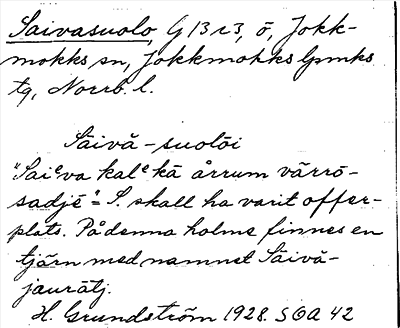 Saivasuolo, G 13 c 3, ö, Jokk-
mokks sn, Jokkmokks lpmks
tg, Norrb. l.
Säivā-suolōi
"Saiᵉva kalᵉkā årrum värrō-
sadjē" = S. skall ha varit offer-
plats. På denna holme finnes en
tjärn med namnet Säivā-
jaurātj.
H. Grundström 1928. SOA 42